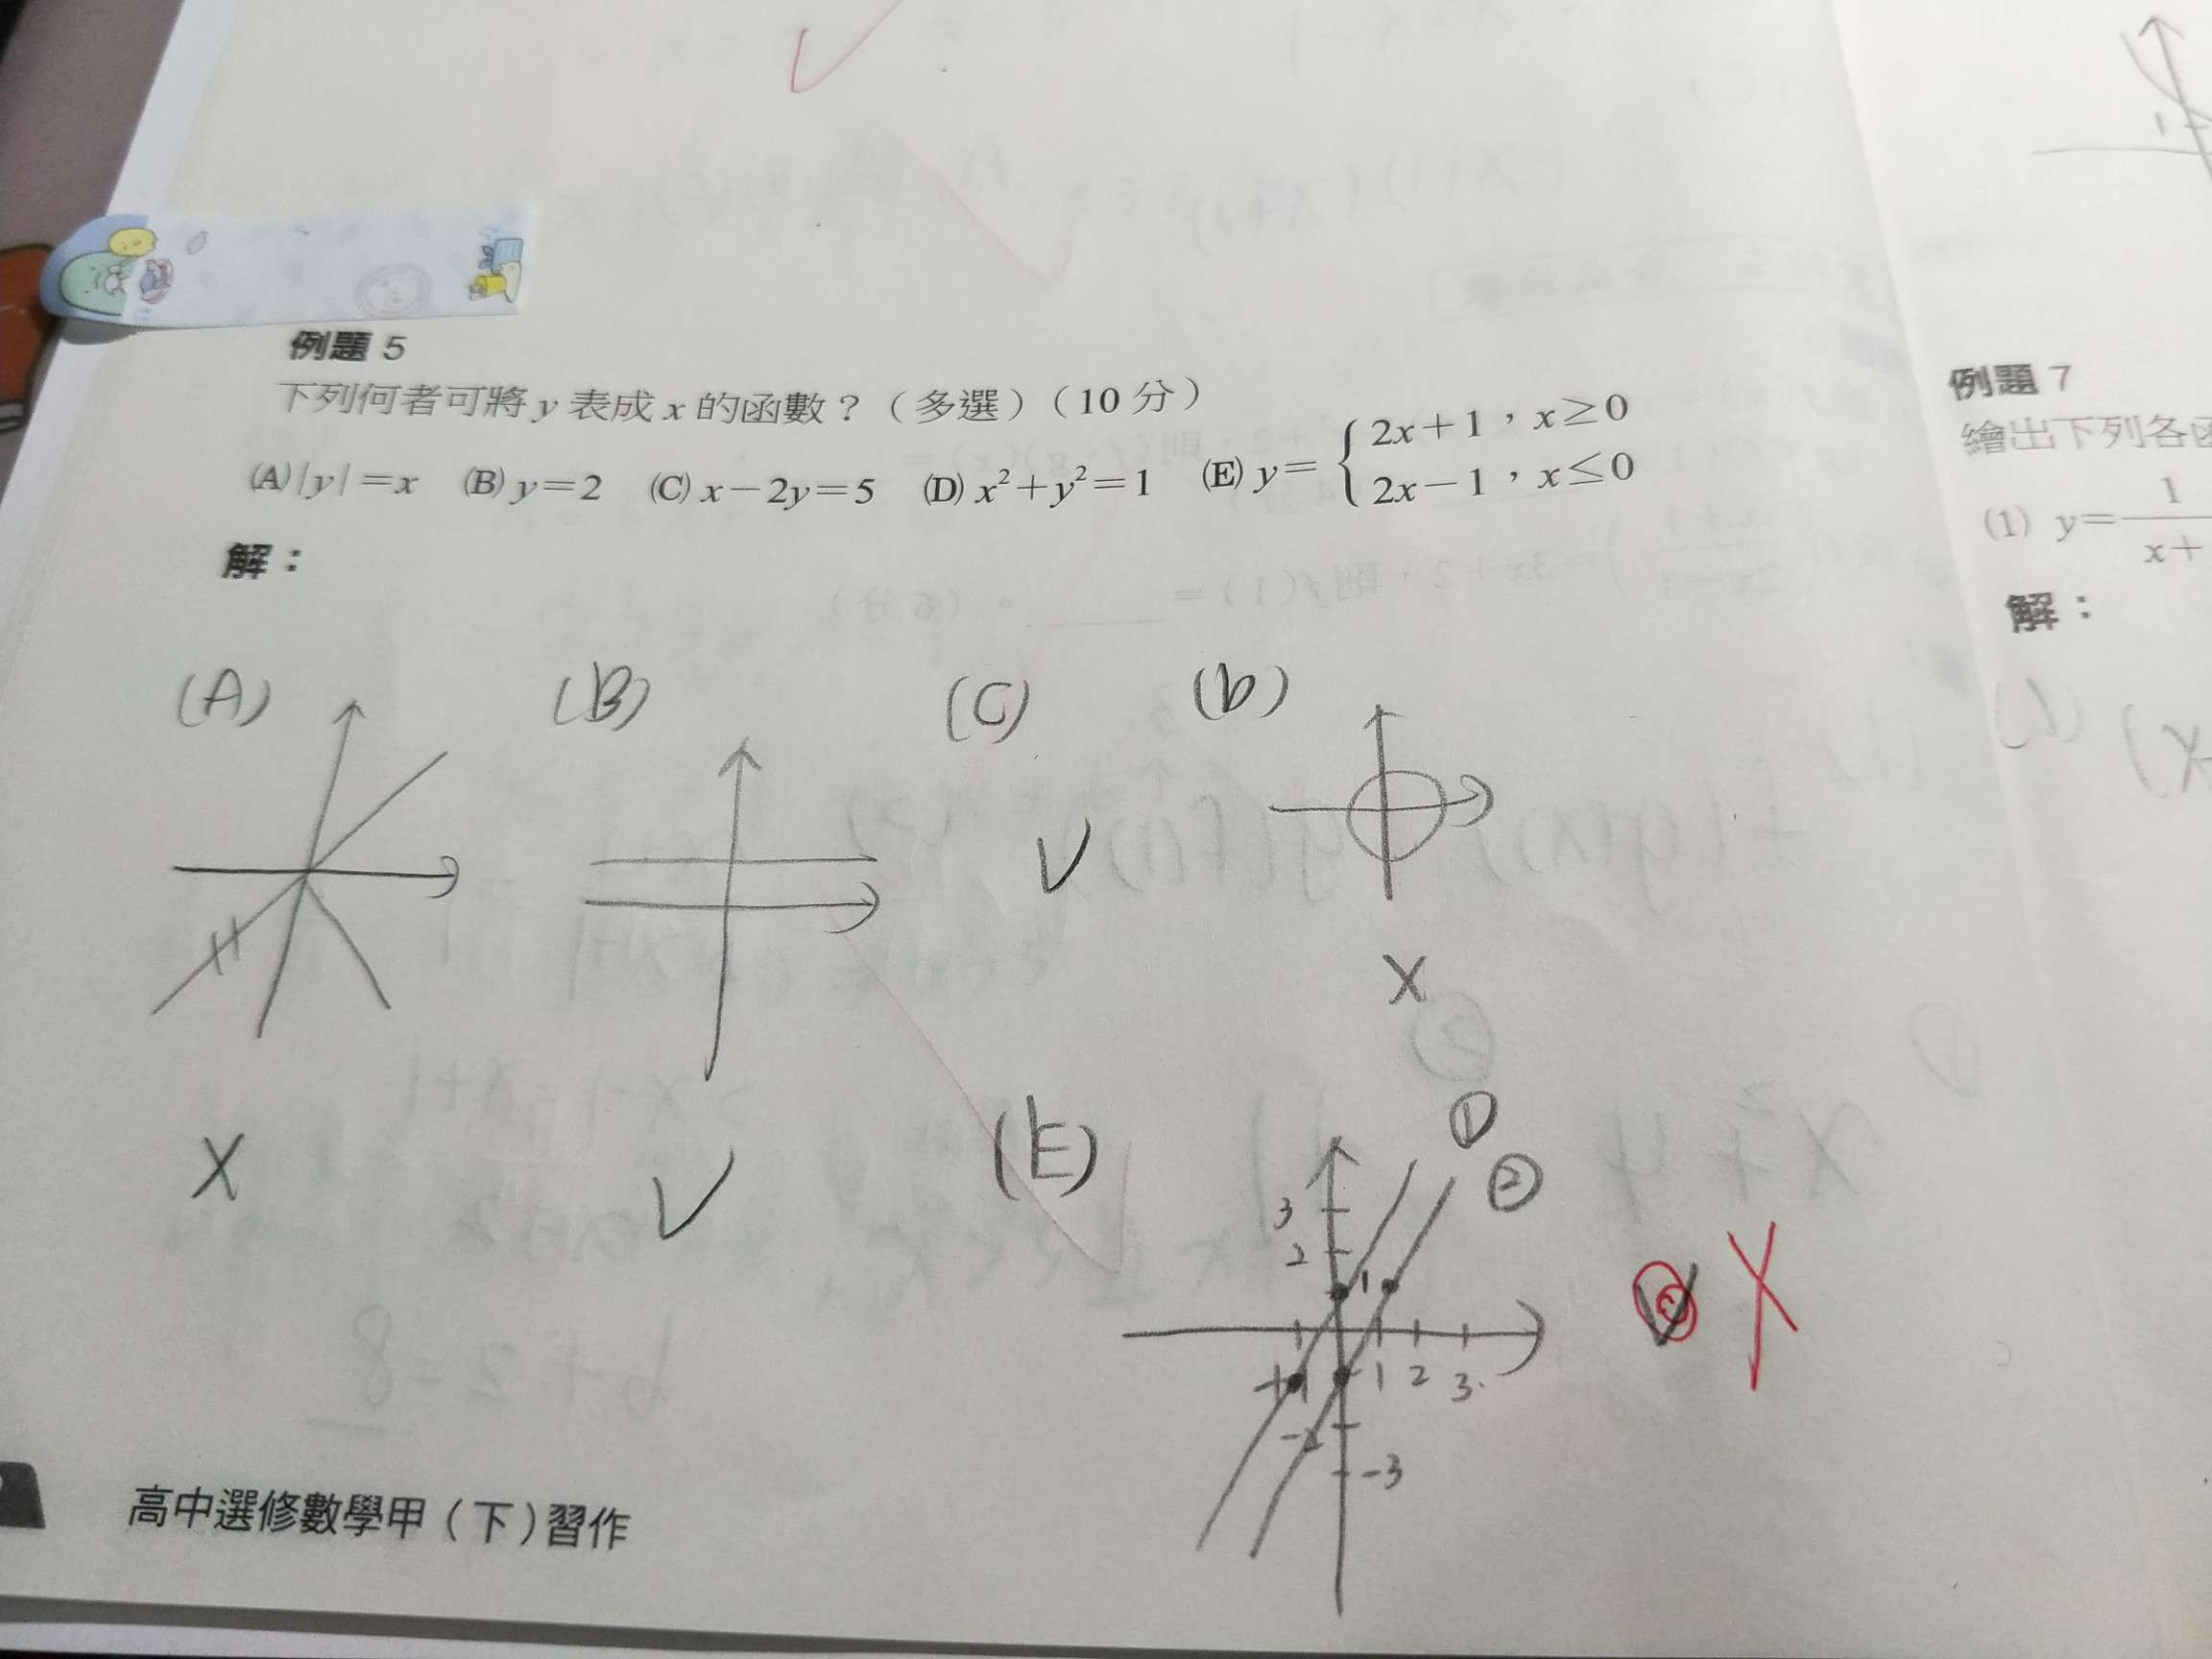 例題 5
下列何者可將 y 表成 x 的函數？（多選）（10 分）
(A) |y|=x (B) y=2 (C) x-2y=5 (D) x²+y²=1 (E) y={2x+1，x≥0
2x-1，x≤0
解：
(A) (B) (C) (D)
V
X
X V (E) ① ②
3
2
1
-1 1 2 3
-2
-3
V X
高中選修數學甲（下）習作
例題 7
繪出下列各函
(1) y=1/x+
解：